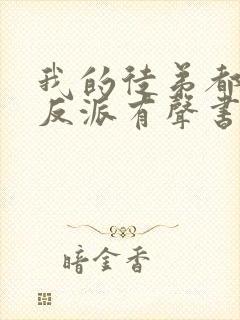 我的徒弟都
反派有聲書
暗金香